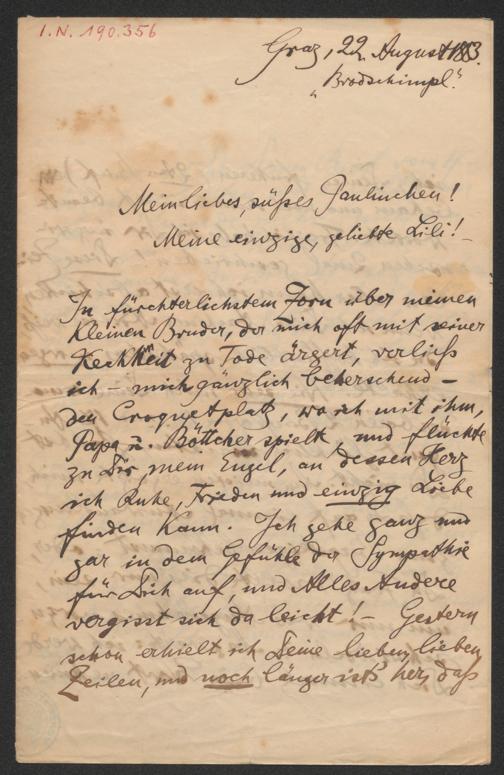 I.N. 190.356
Graz, 22. August 1883.
„Brodschimpl."
Mein liebes, süßes Paulinchen!
Meine einzige, geliebte Lili! –
In fürchterlichstem Zorn über meinen
kleinen Bruder, der mich oft mit seiner
Keckheit zu Tode ärgert, verließ
ich – mich gänzlich beherschend –
den Croquetplatz, wo ich mit ihm,
Papa u. Böttcher spielte, und flüchte
zu Dir, mein Engel, an dessen Herz
ich Ruhe, Frieden und einzig Liebe
finden kann. Ich gehe ganz und
gar in dem Gefühle der Sympathie
für Dich auf, und Alles Andere
vergisst sich da leicht! – Gestern
schon erhielt ich Deine lieben, lieben
Zeilen, und noch länger ist's her, daß